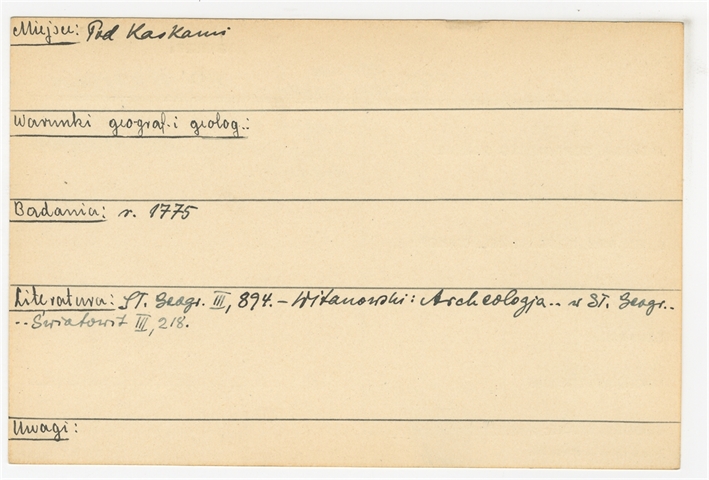 Miejsce: Pod Kaskami
Warunki geograf. i geolog.:
Badania: r. 1775
Literatura: Sł. Geogr. III, 894. – Witanowski: Archeologja .. w Sł. Geogr..
.. Światowit III, 218.
Uwagi: